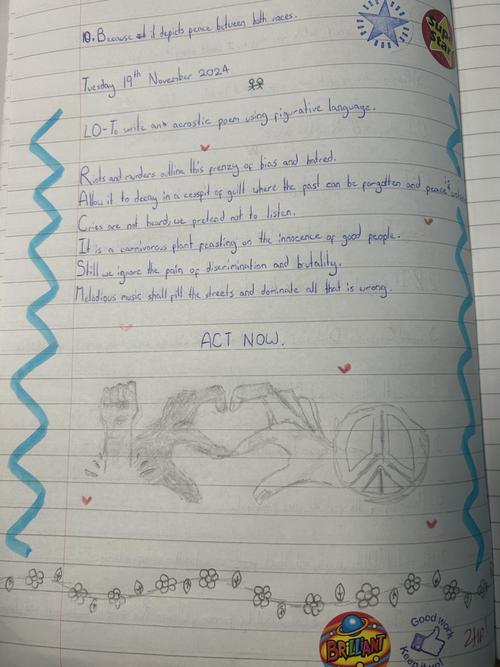 10. Because it depicts peace between both races.
SUPER STAR
Tuesday 19th November 2024
LO-To write an acrostic poem using figurative language.
Riots and murders outline this frenzy of bias and hatred.
Allow it to decay in a cesspit of guilt where the past can be forgotten and peace is
Cries are not heard, we pretend not to listen.
It is a carnivorous plant feasting on the innocence of good people.
Still we ignore the pain of discrimination and brutality.
Melodious music shall fill the streets and dominate all that is wrong.
ACT NOW.
BRILLIANT
Good work
Keep it up!